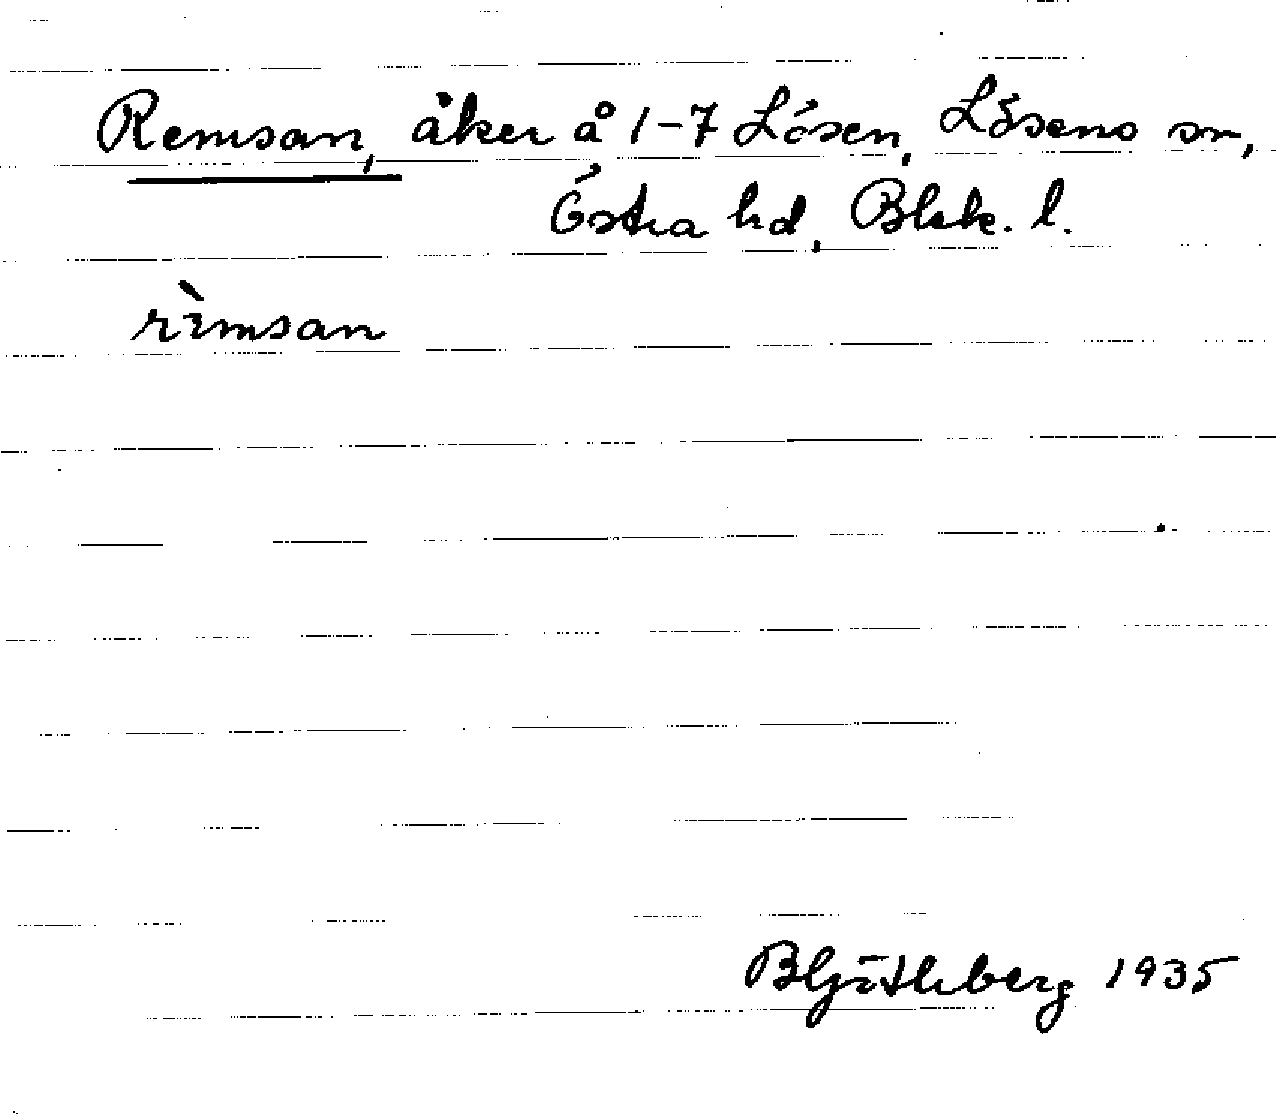 Remsan, åker å 1-7 Lösen, Lösens sn,
Östra hd, Blek. l.
rìmsan
1935